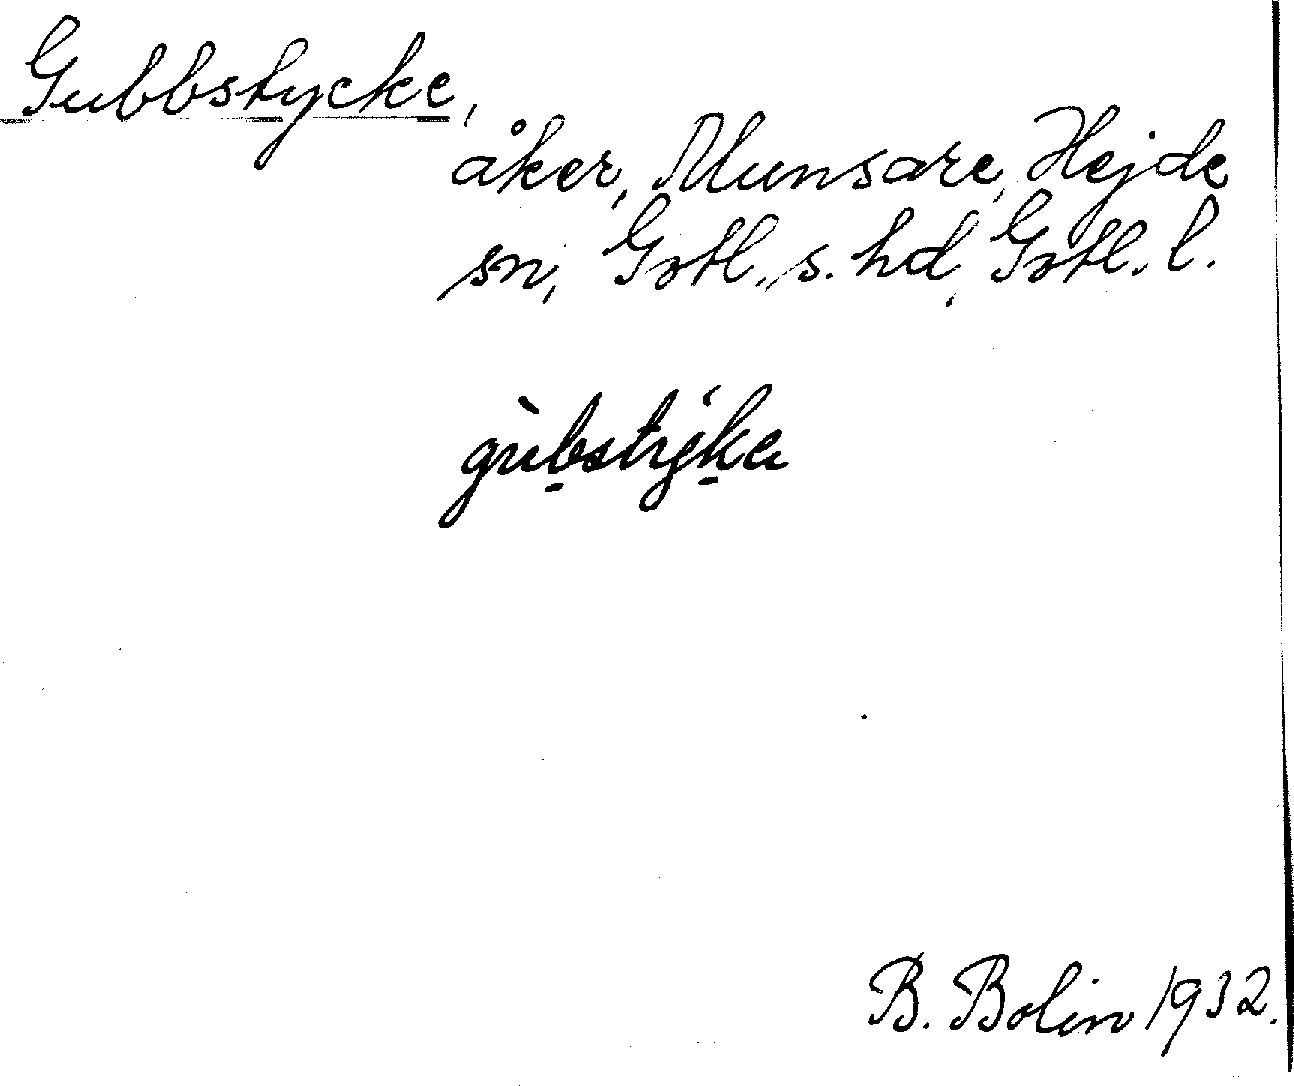 Gubbstycke,
åker, Munsare, Hejde
sn, Gotl., s. hd, Gotl. l.
gùbstýka
B. Bolin 1932.